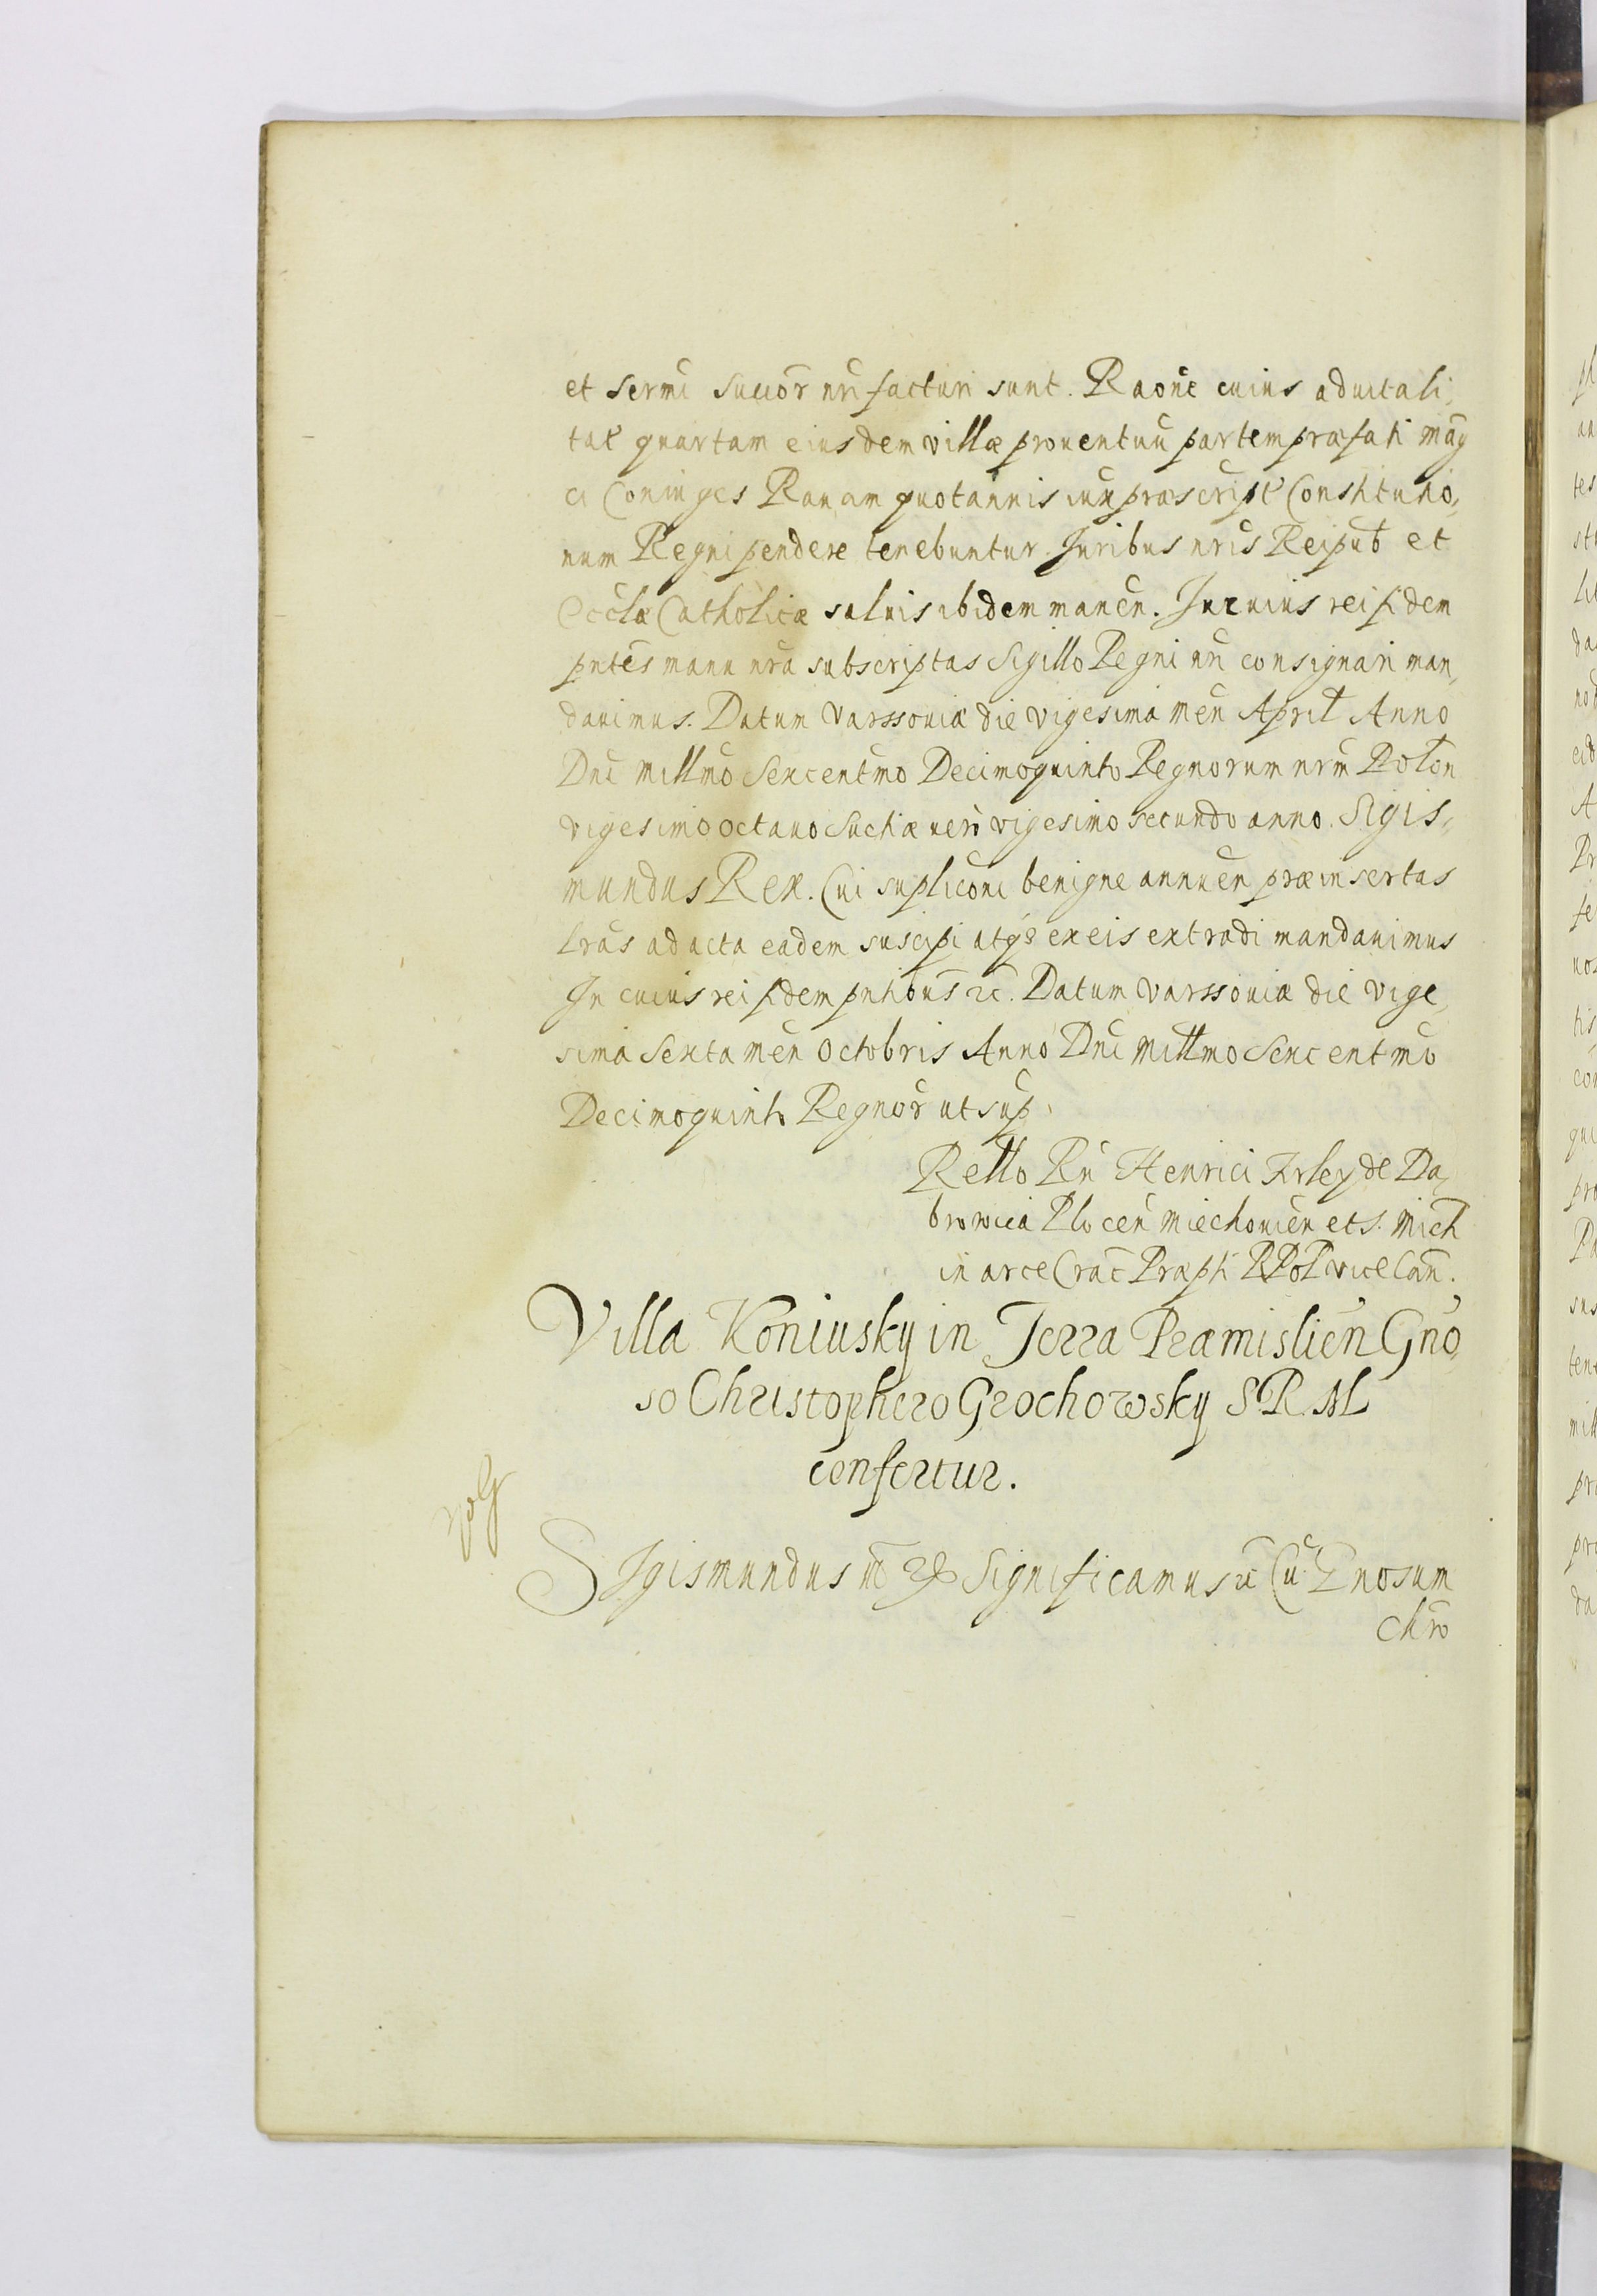 et sermi succōr nri facturi sunt. Raone cuius aduitali,
tat quartam eiusdem villæ prouentuū partem præfati mag
ci Coniuges Rauam quotannis iux præscript Constitutio,
num Regni pendere tenebuntur. Juribus nris Reipub et
Ecclæ Catholicæ saluis ibidem manēn. In cuius rei fidem
pntes manu nra subscriptas Sigillo Regni nri consignari man,
dauimus. Datum Varssouiæ die vigesima mēn April Anno
Dni millmo Sexcentmo Decimoquinto Regnorum nrm Polon
vigesimo octauo Suetiæ uero vigesimo secundo anno. Sigis,
mundus Rex. Cui supliconi benigne annuēn præinsertas
lras ad acta eadem suscipi atq3 ex eis extradi mandauimus
In cuius rei fidem pntibus rc. Datum Varssouiæ die vige,
sima Sexta mēn Octobris Anno Dni Millmo Sexcentmo
Decimoquinto Regnōr ut sup.
Rello Rn Henrici Firley de Da,
browica Plocēn Miechouiēn et S. Mich
in arce Crac Præpti R Pol vice Can.
Villa Koniusky in Terra Præmisliēn Gno,
so Christophero Grochowsky S. R. M
confertur.
Sigismundus III rc Significamus rc Cū Gnosum
Chro